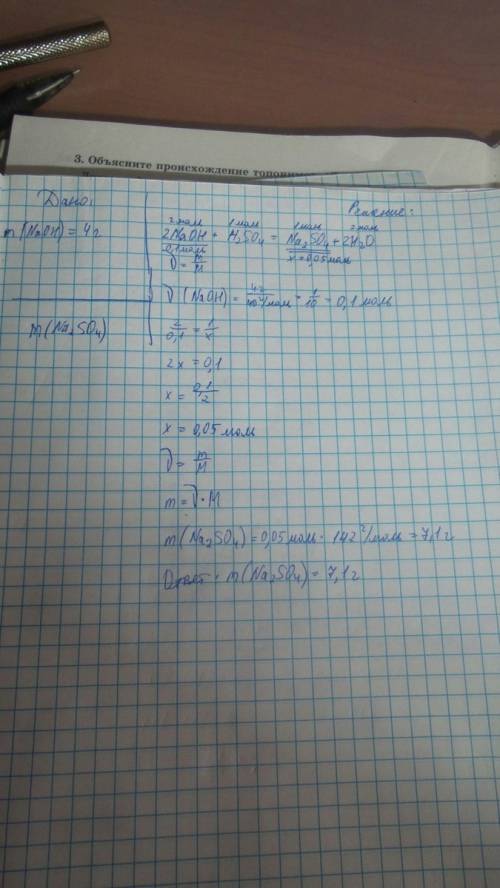 3. Объясните происхождение
Дано:
m(NaOH) = 4г
m(Na₂SO₄)
Решение:
2моль 1моль 1моль 2моль
2NaOH + H₂SO₄ = Na₂SO₄ + 2H₂O
0,1моль x = 0,05моль
ν = m/M
ν(NaOH) = 4г/40г/моль = 1/10 = 0,1 моль
2/0,1 = 1/x
2x = 0,1
x = 0,1/2
x = 0,05 моль
ν = m/M
m = ν · M
m(Na₂SO₄) = 0,05моль · 142г/моль = 7,1г
Ответ: m(Na₂SO₄) = 7,1г